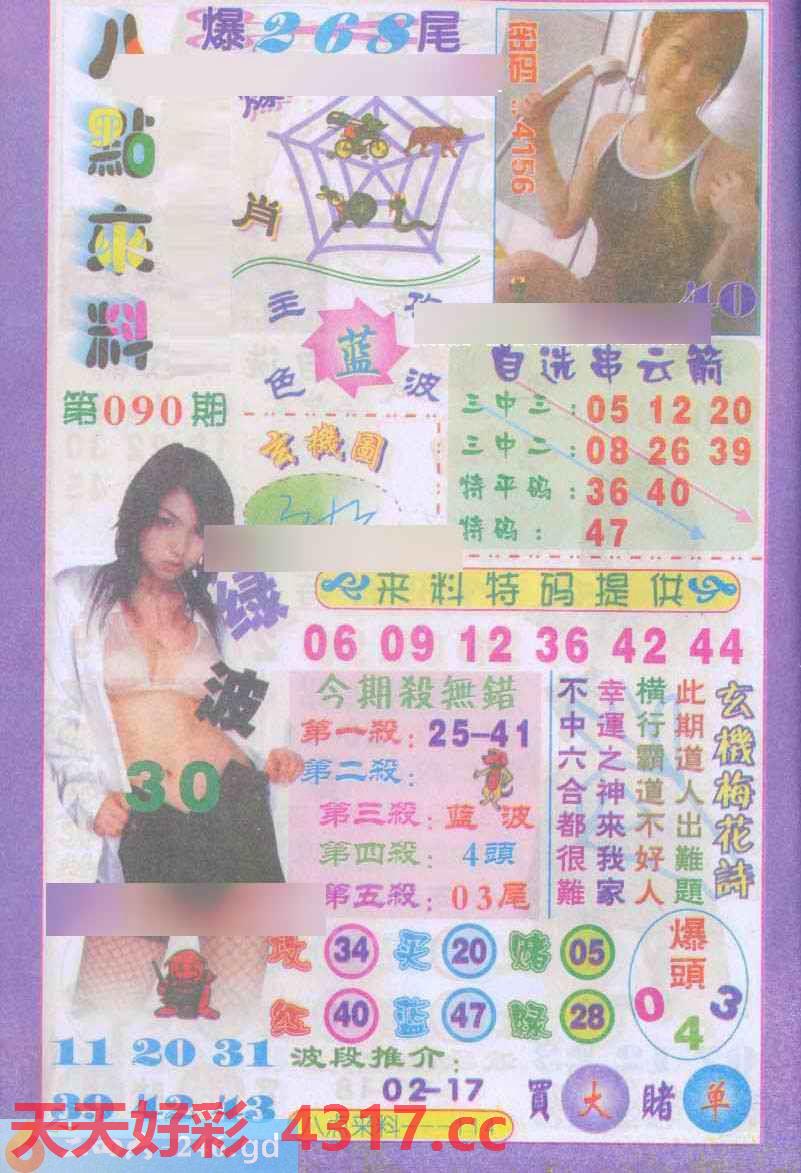 八點來料
爆268尾
爆肖
密码:34156
40
主攻
色波
蓝
第090期
自选串云箭
三中三:05 12 20
三中二:08 26 39
特平码:36 40
特码:47
玄機圖
来料特码提供
06 09 12 36 42 44
绿波
30
今期殺無錯
第一殺:25-41
第二殺:
第三殺:蓝波
第四殺:4頭
第五殺:03尾
玄機梅花詩
此期道人出難題
橫行霸道不好人
幸運之神來我家
不中六合都很難
攻 34 买 20 赌 05
红 40 蓝 47 绿 28
爆頭
0 4 3
11 20 31
39 42 43
波段推介:
02-17
買大賭单
八点来料
天天好彩 4317.cc